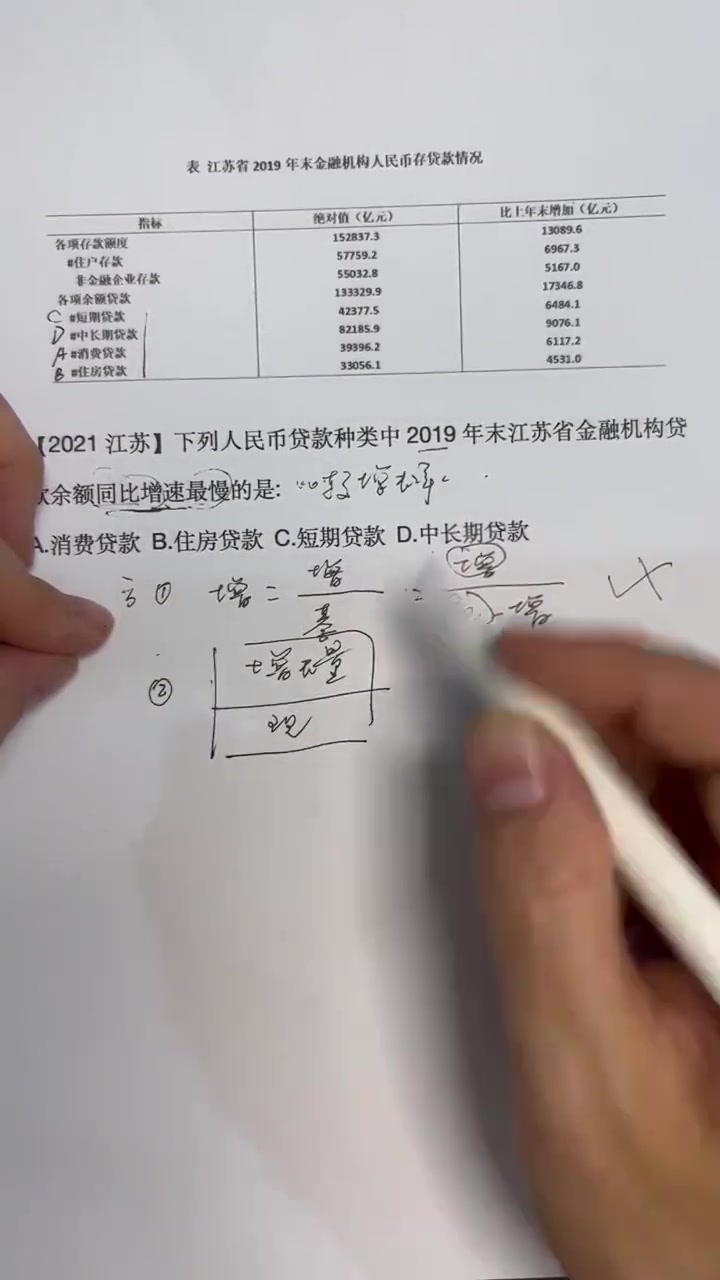 表 江苏省 2019 年末金融机构人民币存贷款情况
指标 绝对值（亿元） 比上年末增加（亿元）
各项存款额度 152837.3 13089.6
#住户存款 57759.2 6967.3
非金融企业存款 55032.8 5167.0
各项余额贷款 133329.9 17346.8
C #短期贷款 42377.5 6484.1
D #中长期贷款 82185.9 9076.1
A #消费贷款 39396.2 6117.2
B #住房贷款 33056.1 4531.0
【2021 江苏】下列人民币贷款种类中 2019 年末江苏省金融机构贷
款余额同比增速最慢的是:
A.消费贷款 B.住房贷款 C.短期贷款 D.中长期贷款
① 增 = 增 / 基 = 增 / 增
② 增长量
现